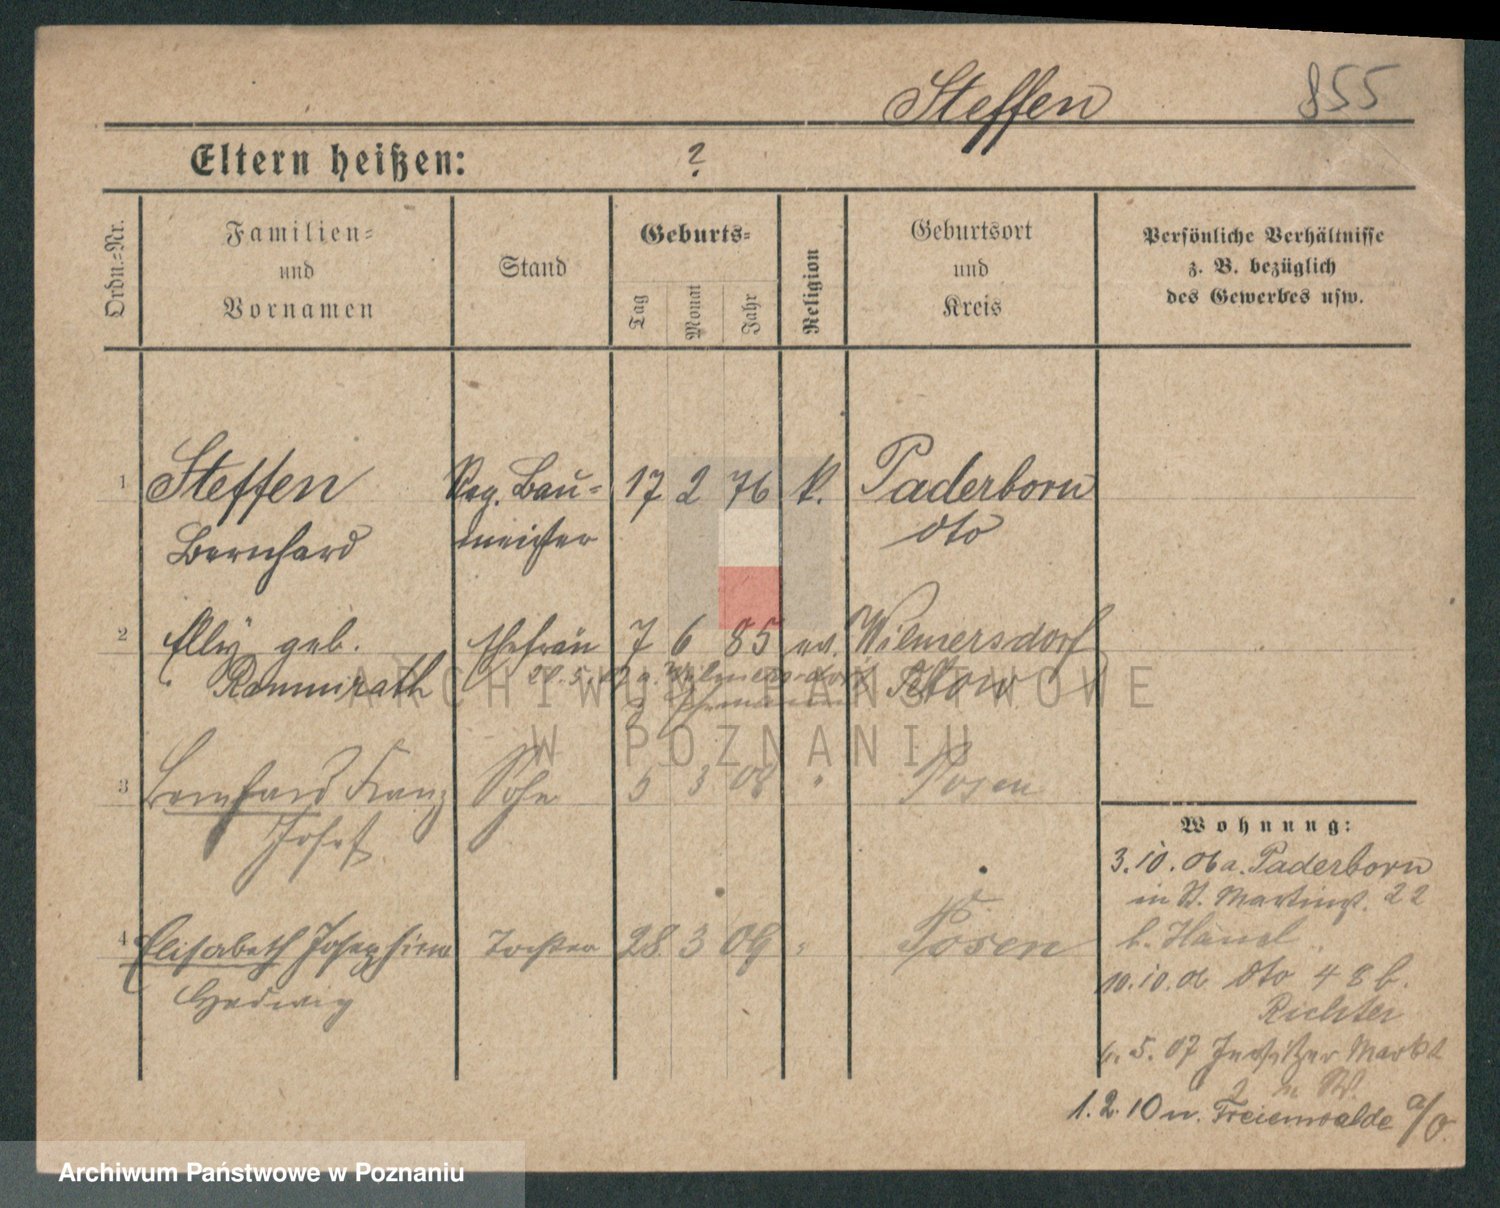 Steffen
855
Eltern heißen: ?
Ordn.-Nr.
Familien-
und
Vornamen
Stand
Geburts-
Tag
Monat
Jahr
Religion
Geburtsort
und
Kreis
Persönliche Verhältnisse
z. B. bezüglich
des Gewerbes usw.
1 Steffen Reg. Bau- 17 2 76 k. Paderborn
Bernhard meister dto
2 Elly geb. Ehefrau 7 6 85 ev. Wilmersdorf
20.5. a. Wilmersdorf
3 Bernhard Franz Sohn 5 3 08 " Posen
Josef
4 Elisabeth Josephine Tochter 28 3 09 " Posen
Hedwig
Wohnung:
3.10.06 a. Paderborn
in St. Martinst. 22
b.
10.10.06 dto 48 b.
Richter
6.5.07 Markt
2
1.2.10 n. Freienwalde a/O.
ARCHIWUM PAŃSTWOWE
W POZNANIU
Archiwum Państwowe w Poznaniu